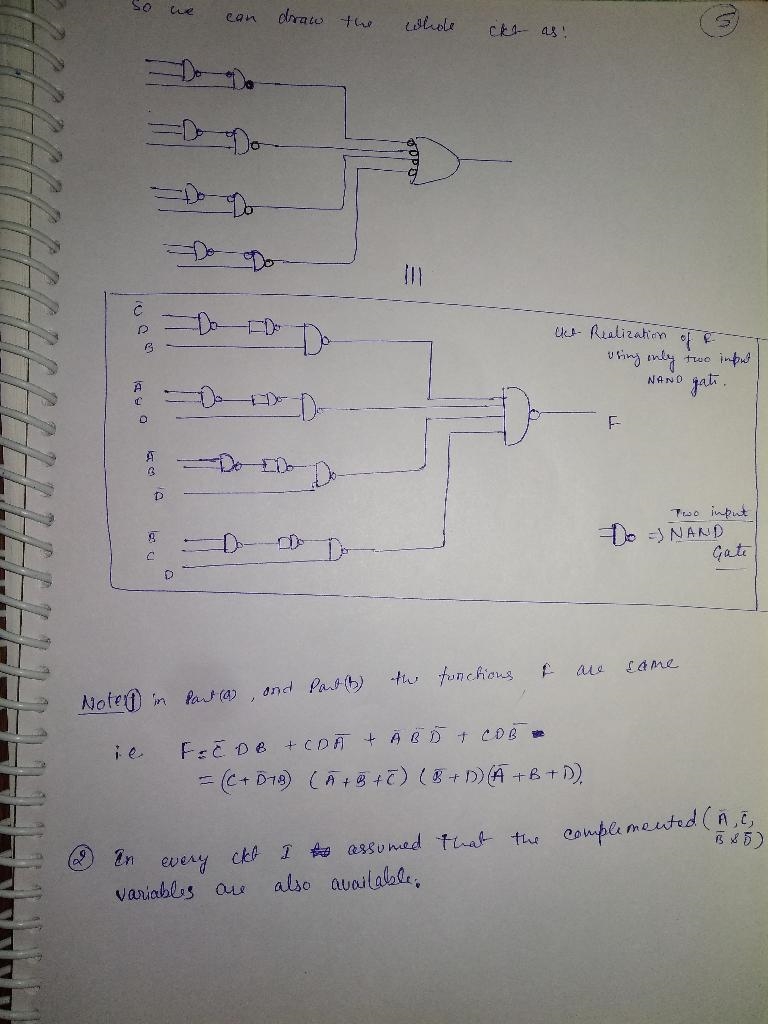 So we can draw the whole ckt as:
5
|||
C̄
D
B
Ā
C
D
Ā
B̄
D̄
B̄
C
D
ckt Realization of F
using only two input
NAND gate.
F
Two input
=> NAND
Gate
Note: ① in Part(a), and Part(b) the functions F are same
i.e F = C̄DB + CDĀ + ĀB̄D̄ + CDB̄
= (C+D̄+B) (Ā+B̄+C̄) (B̄+D) (Ā+B+D).
② In every ckt I assumed that the complemented (Ā, C̄,
B̄ & D̄)
variables are also available.